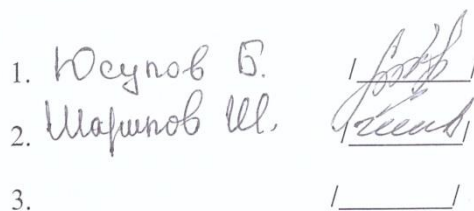 1. Юсупов Б. /________/
2. Шарипов Ш. /________/
3. /________/